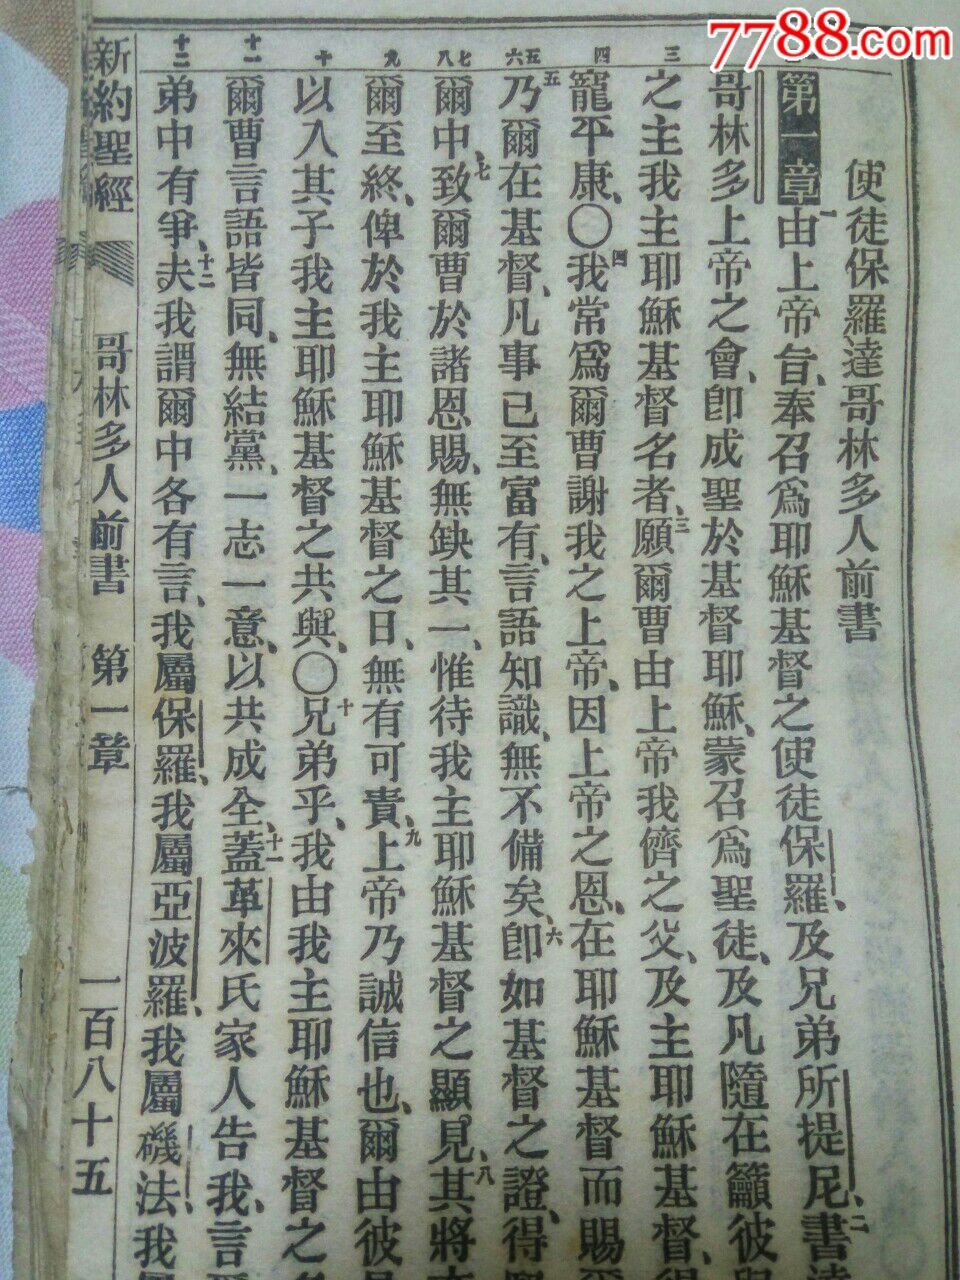 7788.com
使徒保羅達哥林多人前書
第一章一由上帝旨、奉召爲耶穌基督之使徒保羅、及兄弟所提尼、二書達
哥林多上帝之會、卽成聖於基督耶穌、蒙召爲聖徒、及凡隨在籲彼與
之主我主耶穌基督名者、三願爾曹由上帝我儕之父、及主耶穌基督、得
寵平康、〇四我常爲爾曹謝我之上帝、因上帝之恩、在耶穌基督而賜爾
五乃爾在基督、凡事已至富有、言語知識、無不備矣、六卽如基督之證、得
爾中、七致爾曹於諸恩賜、無缺其一、惟待我主耶穌基督之顯見、八其將
爾至終、俾於我主耶穌基督之日、無有可責、九上帝乃誠信也、爾由彼
以入其子我主耶穌基督之共與、〇十兄弟乎、我由我主耶穌基督之名
爾曹言語皆同、無結黨、一志一意、以共成全、十一蓋革來氏家人告我、言
弟中有爭、十二夫我謂爾中各有言、我屬保羅、我屬亞波羅、我屬磯法、我
三
四
五
六
七
八
九
十
十一
十二
新約聖經 哥林多人前書 第一章 一百八十五